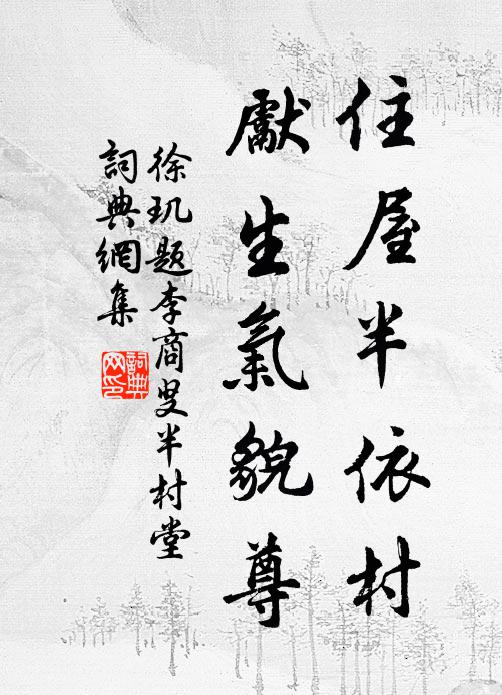 住屋半依村
獻生氣貌尊
徐玑题李商叟半村堂
詞典網集
詞典网印